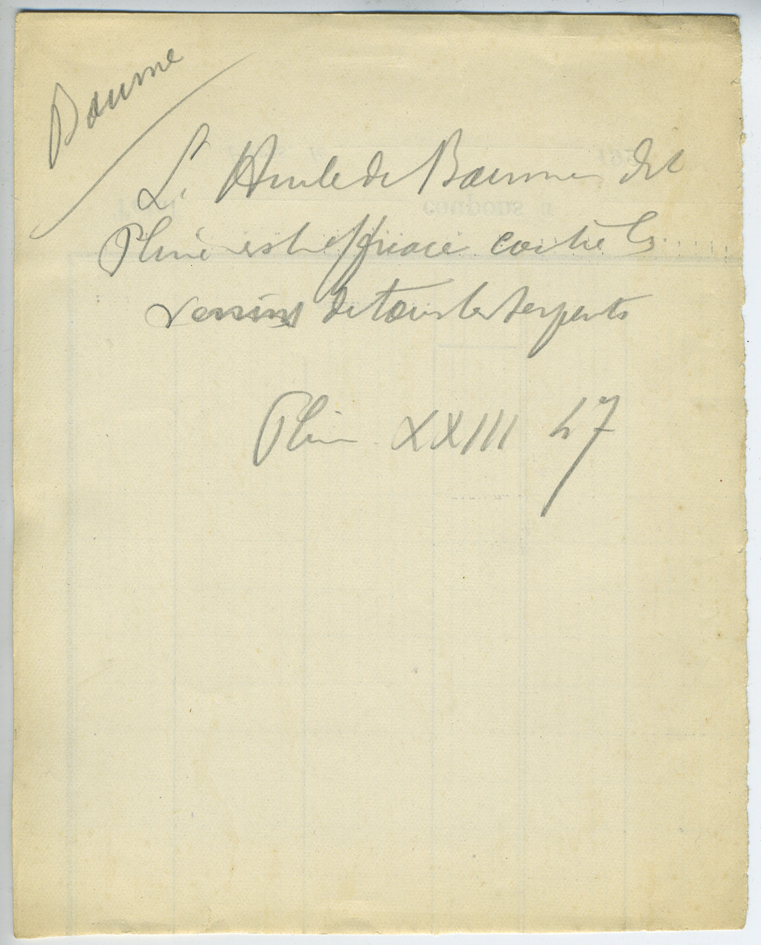 Baume
L'Huile de Baume dit
Pline est efficace contre les
venins de tous les serpents
Plin XXIII 47
coupons